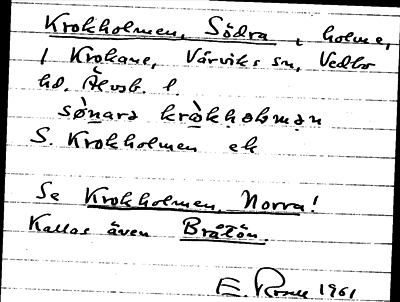 Krokholmen, Södra, holme,
i Krokane, Vårviks sn, Vedbo
hd. Älvsb. l.
sø̀nara krɷ̀khɷlmən
S. Krokholmen ek
Se Krokholmen, Norra!
Kallas även Bråtön.
E. 1961